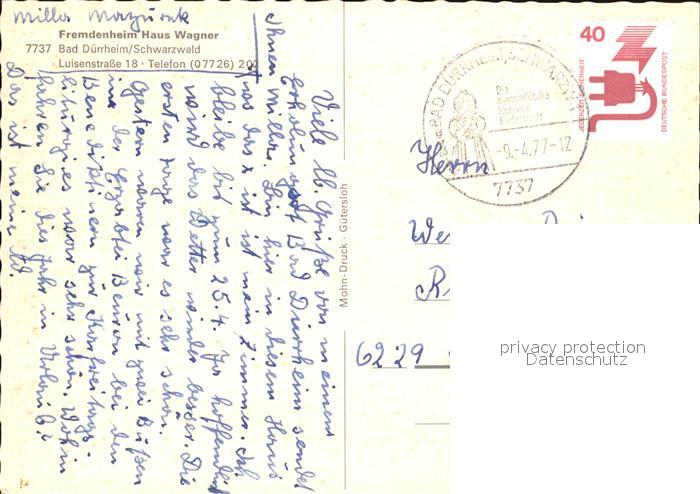 Milla Mazurek
Fremdenheim Haus Wagner
7737 Bad Dürrheim/Schwarzwald
Luisenstraße 18 · Telefon (07726) 202
Viele lb. Grüße von meinem
Erholungsort Bad Dürrheim sendet
Ihnen Milla. Bin hier in diesem Haus
wo das x ist ist mein Zimmer. Ich
bleibe bis zum 25.4. Ja hoffentlich
wird das Wetter wieder besser. Die
ersten Tage war es sehr schön.
Gestern waren wir mit zwei Bußen
in der Erzabtei Beuron bei den
Benediktinern zur Karfreitags-
liturgie es war sehr schön. Wohin
fahren Sie dies Jahr in Urlaub?
Das ist mein
Mohn-Druck · Gütersloh
BAD DÜRRHEIM
Die
europäische
-9.-4.77-12
7737
40
JEDERZEIT SICHERHEIT
DEUTSCHE BUNDESPOST
Herrn
We
R
6229
privacy protection
Datenschutz